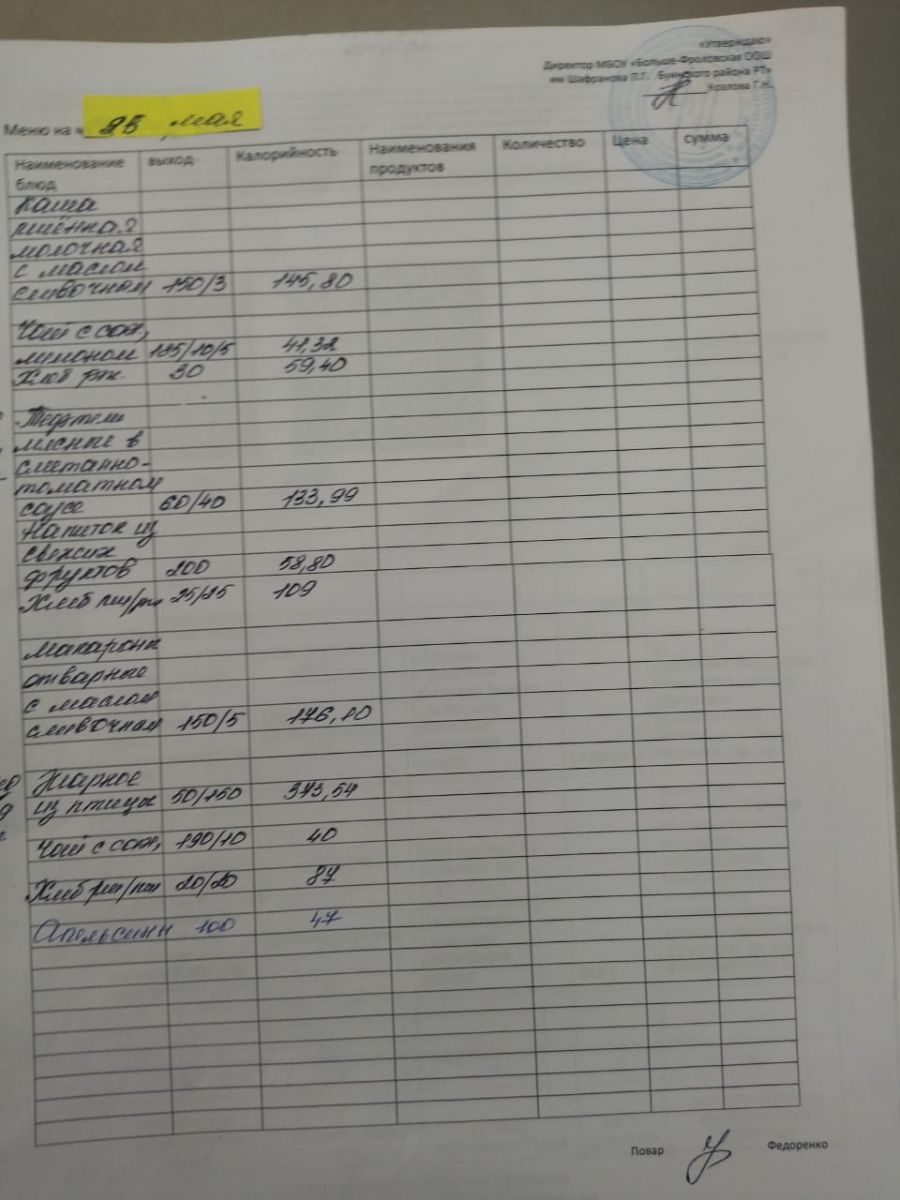 «Утверждаю»
Директор МБОУ «Больше-Фроловская ООШ
им Шафранова П.Г. Буинского района РТ»
Козлова Г.Н.
Меню на « 25 мая
Наименование блюд выход Калорийность Наименования продуктов Количество Цена сумма
Каша
пшённая
молочная
с маслом
сливочном 150/3 145,80
Чай с сах,
лимоном 185/10/5 41,32
Хлеб рж. 30 59,40
Тефтели
мясные в
сметанно-
томатном
соусе 60/40 133,99
Напиток из
свежих
фруктов 200 58,80
Хлеб пш/рж 25/25 109
Макароны
отварные
с маслом
сливочном 150/5 176,10
Жаркое
из птицы 50/150 373,54
Чай с сах, 190/10 40
Хлеб рж/пш 20/20 87
Апельсины 100 47
Повар Федоренко